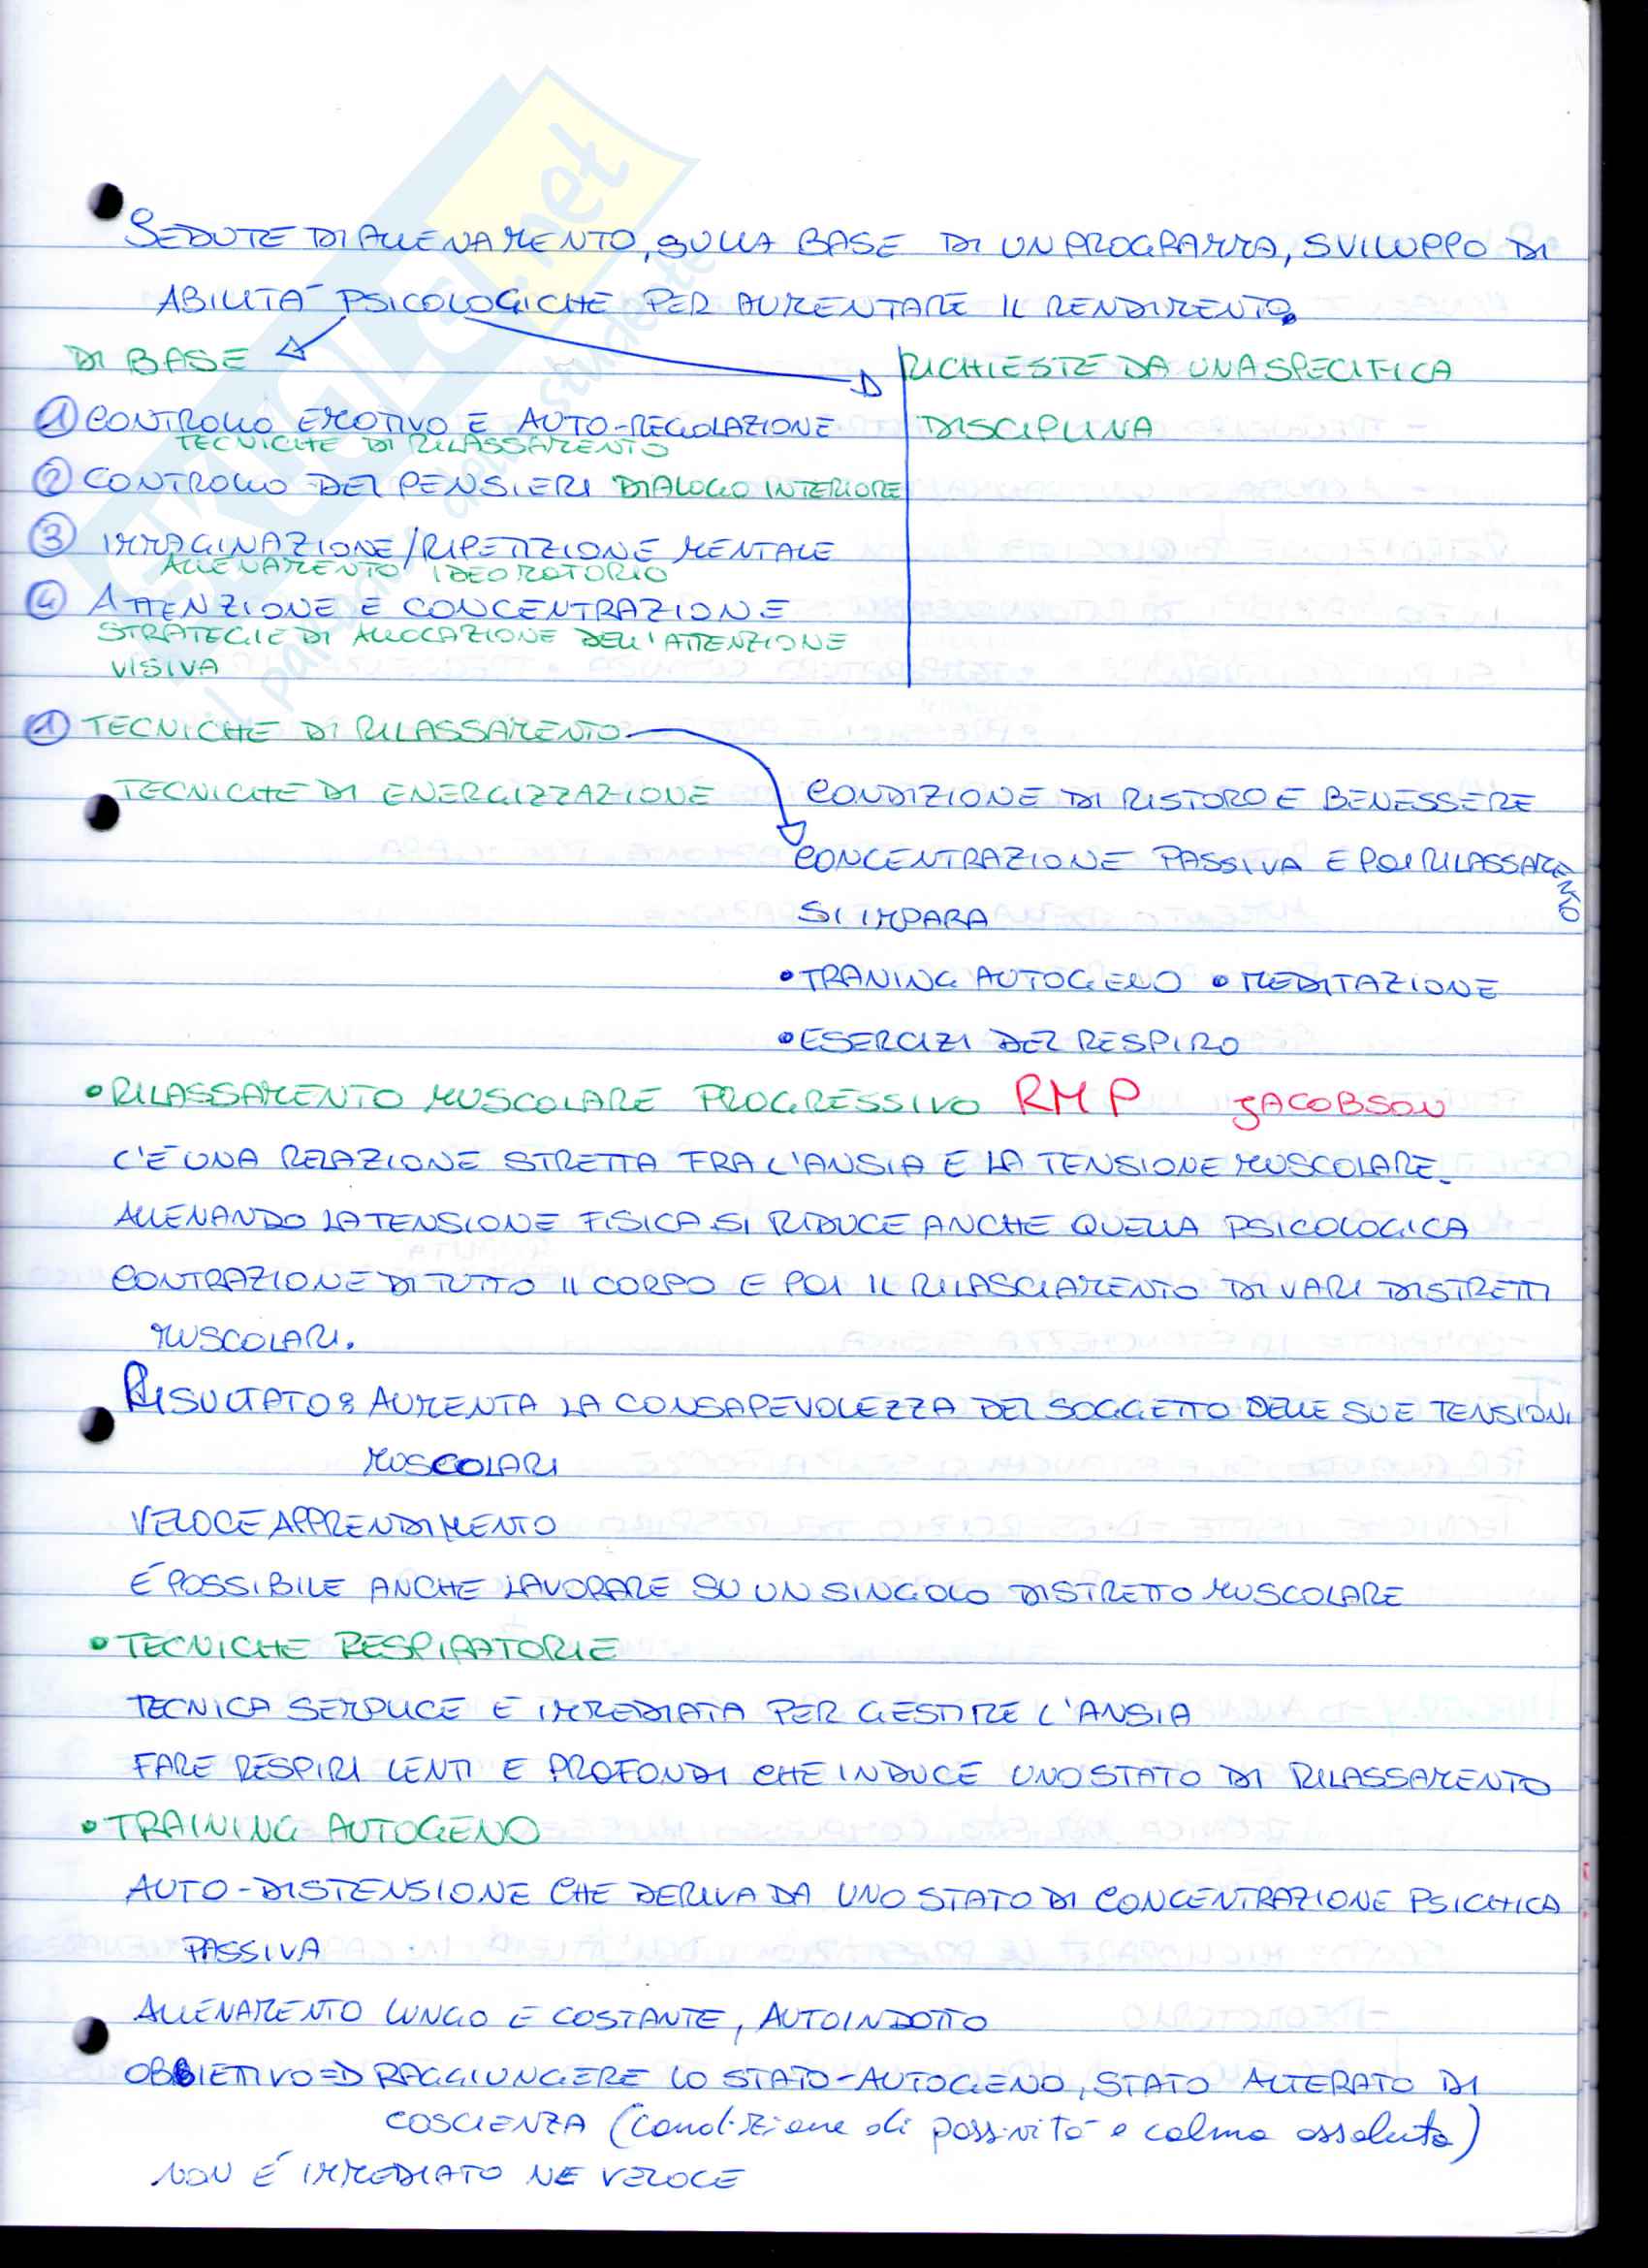 SEDUTE DI ALLENAMENTO, SULLA BASE DI UN PROGRAMMA, SVILUPPO DI
ABILITÀ PSICOLOGICHE PER AUMENTARE IL RENDIMENTO.
DI BASE
RICHIESTE DA UNA SPECIFICA
DISCIPLINA
① CONTROLLO EMOTIVO E AUTO-REGOLAZIONE
TECNICHE DI RILASSAMENTO
② CONTROLLO DEI PENSIERI DIALOGO INTERIORE
③ IMMAGINAZIONE/RIPETIZIONE MENTALE
ALLENAMENTO IDEOMOTORIO
④ ATTENZIONE E CONCENTRAZIONE
STRATEGIE DI ALLOCAZIONE DELL'ATTENZIONE
VISIVA
① TECNICHE DI RILASSAMENTO
TECNICHE DI ENERGIZZAZIONE
CONDIZIONE DI RISTORO E BENESSERE
CONCENTRAZIONE PASSIVA E POI RILASSAMENTO
SI IMPARA
• TRANING AUTOGENO • MEDITAZIONE
• ESERCIZI DEL RESPIRO
• RILASSAMENTO MUSCOLARE PROGRESSIVO RMP JACOBSON
C'È UNA RELAZIONE STRETTA FRA L'ANSIA E LA TENSIONE MUSCOLARE.
ALLENANDO LA TENSIONE FISICA SI RIDUCE ANCHE QUELLA PSICOLOGICA
CONTRAZIONE DI TUTTO IL CORPO E POI IL RILASCIAMENTO DI VARI DISTRETTI
MUSCOLARI.
RISULTATO: AUMENTA LA CONSAPEVOLEZZA DEL SOGGETTO DELLE SUE TENSIONI
MUSCOLARI
VELOCE APPRENDIMENTO
É POSSIBILE ANCHE LAVORARE SU UN SINGOLO DISTRETTO MUSCOLARE
• TECNICHE RESPIRATORIE
TECNICA SEMPLICE E IMMEDIATA PER GESTIRE L'ANSIA
FARE RESPIRI LENTI E PROFONDI CHE INDUCE UNO STATO DI RILASSAMENTO
• TRAINING AUTOGENO
AUTO-DISTENSIONE CHE DERIVA DA UNO STATO DI CONCENTRAZIONE PSICHICA
PASSIVA
ALLENAMENTO LUNGO E COSTANTE, AUTOINDOTTO
OBBIETTIVO => RAGGIUNGERE LO STATO-AUTOGENO, STATO ALTERATO DI
COSCIENZA (condizione di passività e calma assoluta)
NON É IMMEDIATO NE VELOCE